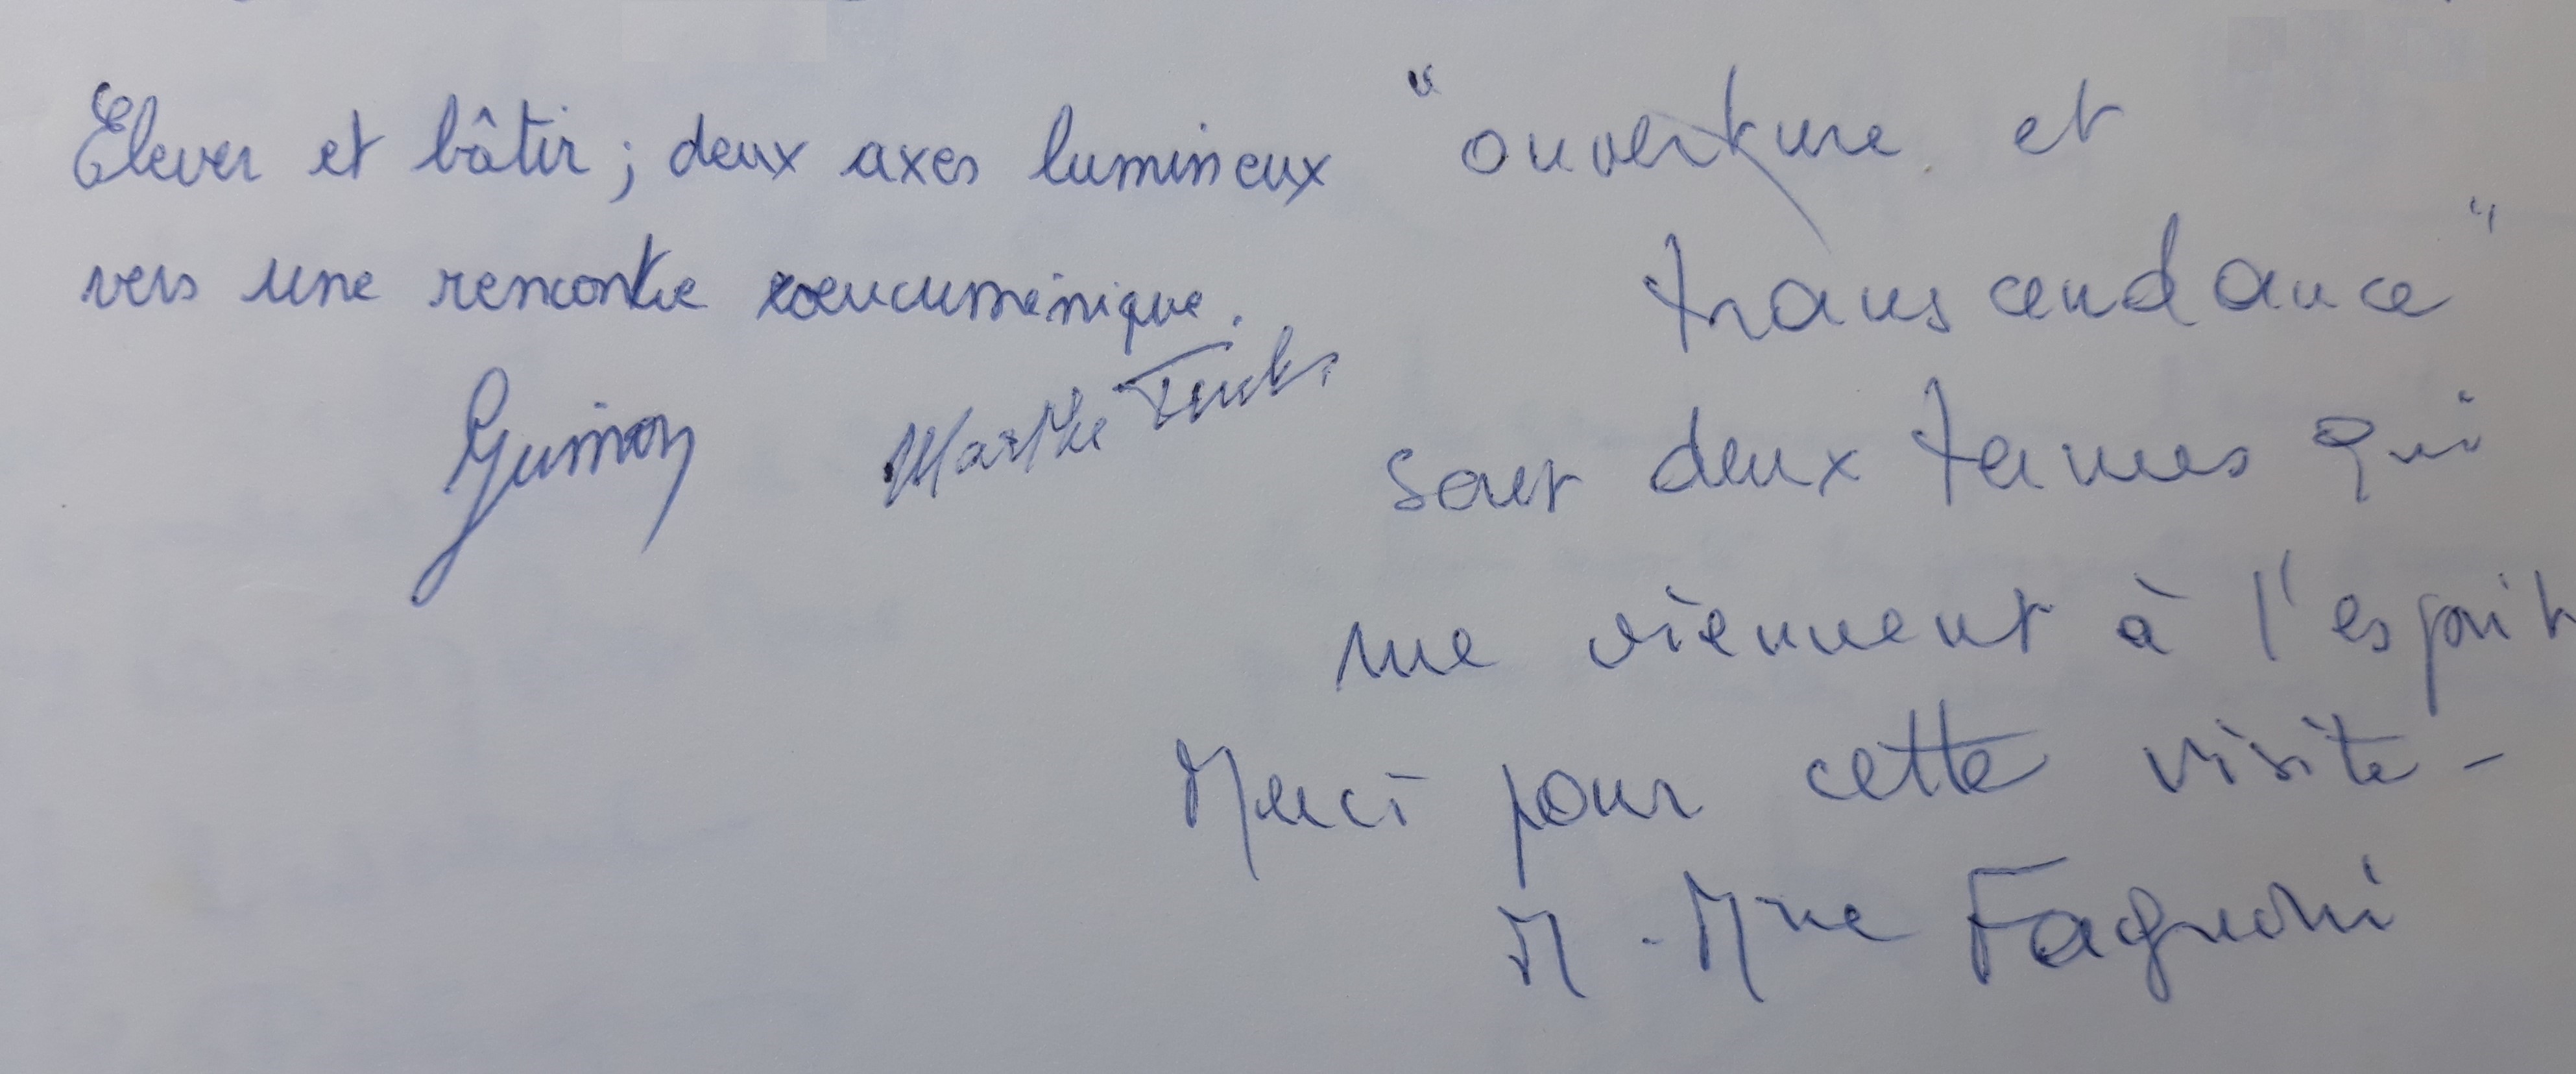 Elever et bâtir ; deux axes lumineux
vers une rencontre oeucuménique.
Guimon
Marthe
"ouverture et
transcendance"
sont deux termes qui
me viennent à l'esprit
Merci pour cette visite -
M - Mme Fagnoni